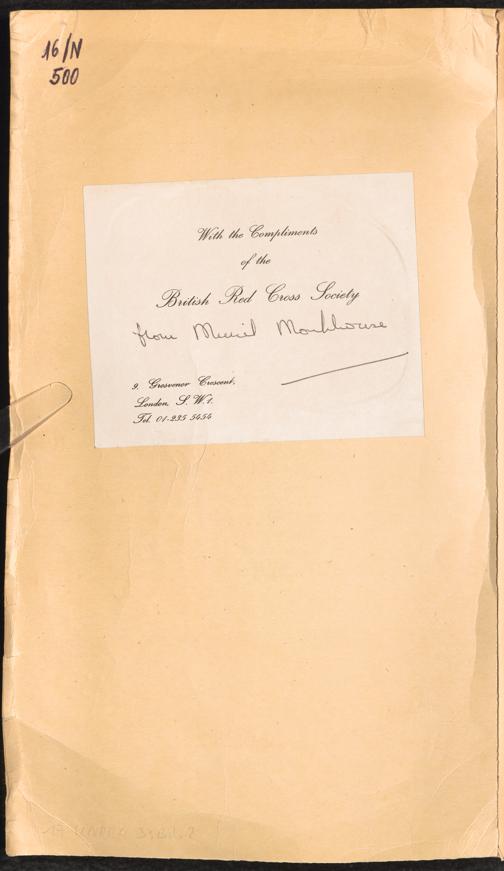 16/N
500
With the Compliments
of the
British Red Cross Society
from Muriel Monkhouse
9. Grosvenor Crescent,
London, S. W.1.
Tel. 01-235 5454